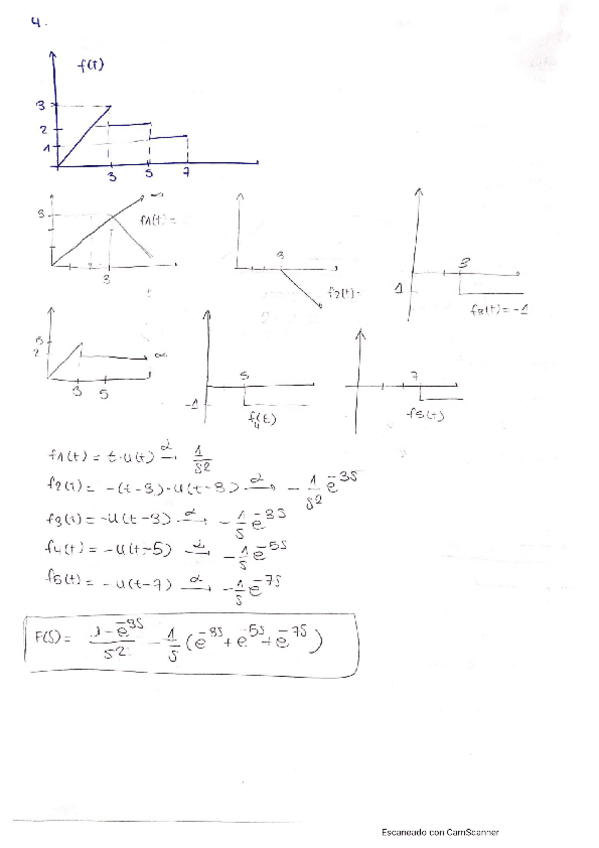 4.
f(t)
3
2
1
3 5 7
3
f1(t) =
3
t
3
f2(t) =
3
1
f3(t) = -1
3
2
3 5
∞
5
-1
f4(t)
7
f5(t)
f1(t) = t·u(t) ℒ→ 1/s2
f2(t) = -(t-3)·u(t-3) ℒ→ - 1/s2 e^-3s
f3(t) = -u(t-3) ℒ→ - 1/s e^-3s
f4(t) = -u(t-5) ℒ→ - 1/s e^-5s
f5(t) = -u(t-7) ℒ→ - 1/s e^-7s
F(s) = 1-e^-3s/s2 - 1/s (e^-3s + e^-5s + e^-7s)
Escaneado con CamScanner